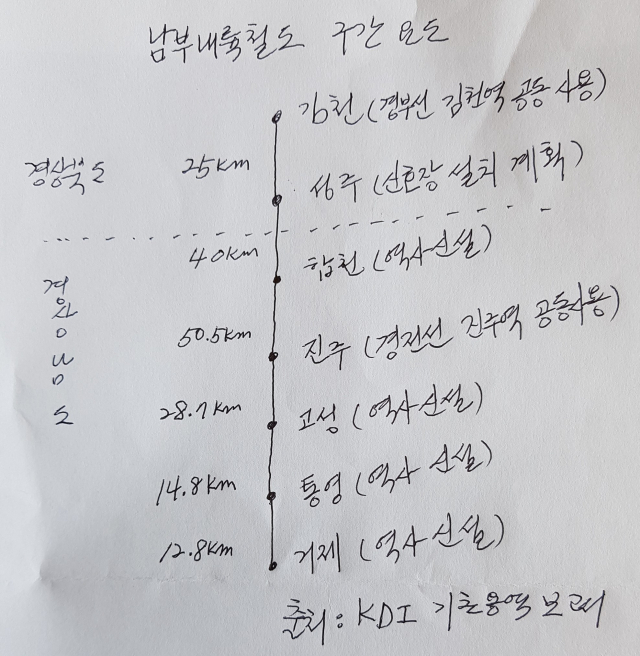 남부내륙철도 구간 요도
김천 (경부선 김천역 공동 사용)
경상북도 25km
성주 (신호장 설치 계획)
40km
합천 (역사신설)
경상남도
50.5km
진주 (경전선 진주역 공동사용)
28.7km
고성 (역사신설)
14.8km
통영 (역사 신설)
12.8km
거제 (역사 신설)
출처 : KDI 기초용역 보고서